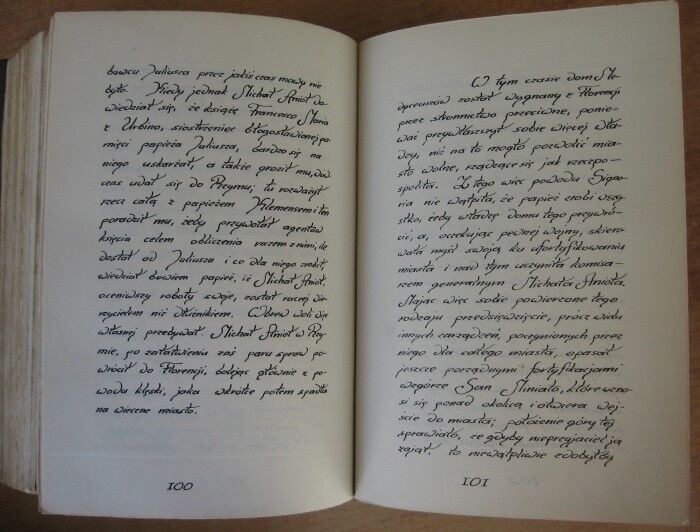 bowcu Juliusza przez jakiś czas mowy nie
było. Kiedy jednak Michał Anioł do-
wiedział się, że książę Francesco Maria
z Urbino, siostrzeniec błogosławionej pa-
mięci papieża Juliusza, bardzo się na
niego uskarżał, a także groził mu, ów-
czas udał się do Rzymu; tu rozważył
rzecz całą z papieżem Klemensem i ten
poradził mu, żeby przywołał agentów
księcia celem obliczenia razem z nimi, ile
dostał od Juliusza i co dla niego zrobił,
wiedział bowiem papież, iż Michał Anioł,
oceniwszy roboty swoje, został raczej wie-
rzycielem niż dłużnikiem. Wbrew woli więc
własnej przebywał Michał Anioł w Rzy-
mie, po załatwieniu zaś paru spraw po-
wrócił do Florencji, bolejąc głównie z po-
wodu klęski, jaka wkrótce potem spadła
na wieczne miasto.
100
W tym czasie dom Me-
dyceuszów został wygnany z Florencji
przez stronnictwo przeciwne, ponie-
waż przywłaszczył sobie więcej wła-
dzy, niż na to mogło pozwolić mia-
sto wolne, rządzące się jak rzeczpo-
spolita. Z tego więc powodu Signo-
ria nie wątpiła, że papież zrobi wszy-
stko, żeby władzę domu tego przywró-
cić, a, oczekując pewnej wojny, skiero-
wała myśl swoją ku ufortyfikowaniu
miasta i nad tym uczyniła komisa-
rzem generalnym Michała Anioła.
Mając więc sobie powierzone tego
rodzaju przedsięwzięcie, prócz wielu
innych zarządzeń, poczynionych przez
niego dla całego miasta, opasał
jeszcze porządnymi fortyfikacjami
wzgórze San Miniato, które wzno-
si się ponad okolicą i otwiera wej-
ście do miasta; położenie góry tej
sprawiało, że gdyby nieprzyjaciel ją
zajął, to niewątpliwie zdobyłby
101